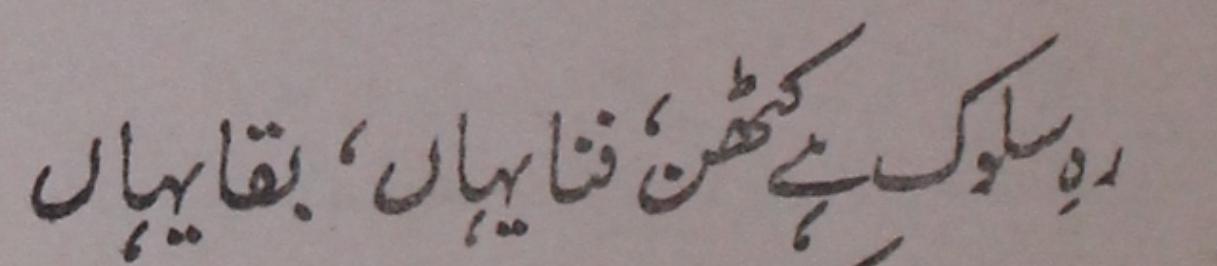 رہِ سلوک ہے کٹھن، فنا یہاں، بقا یہاں